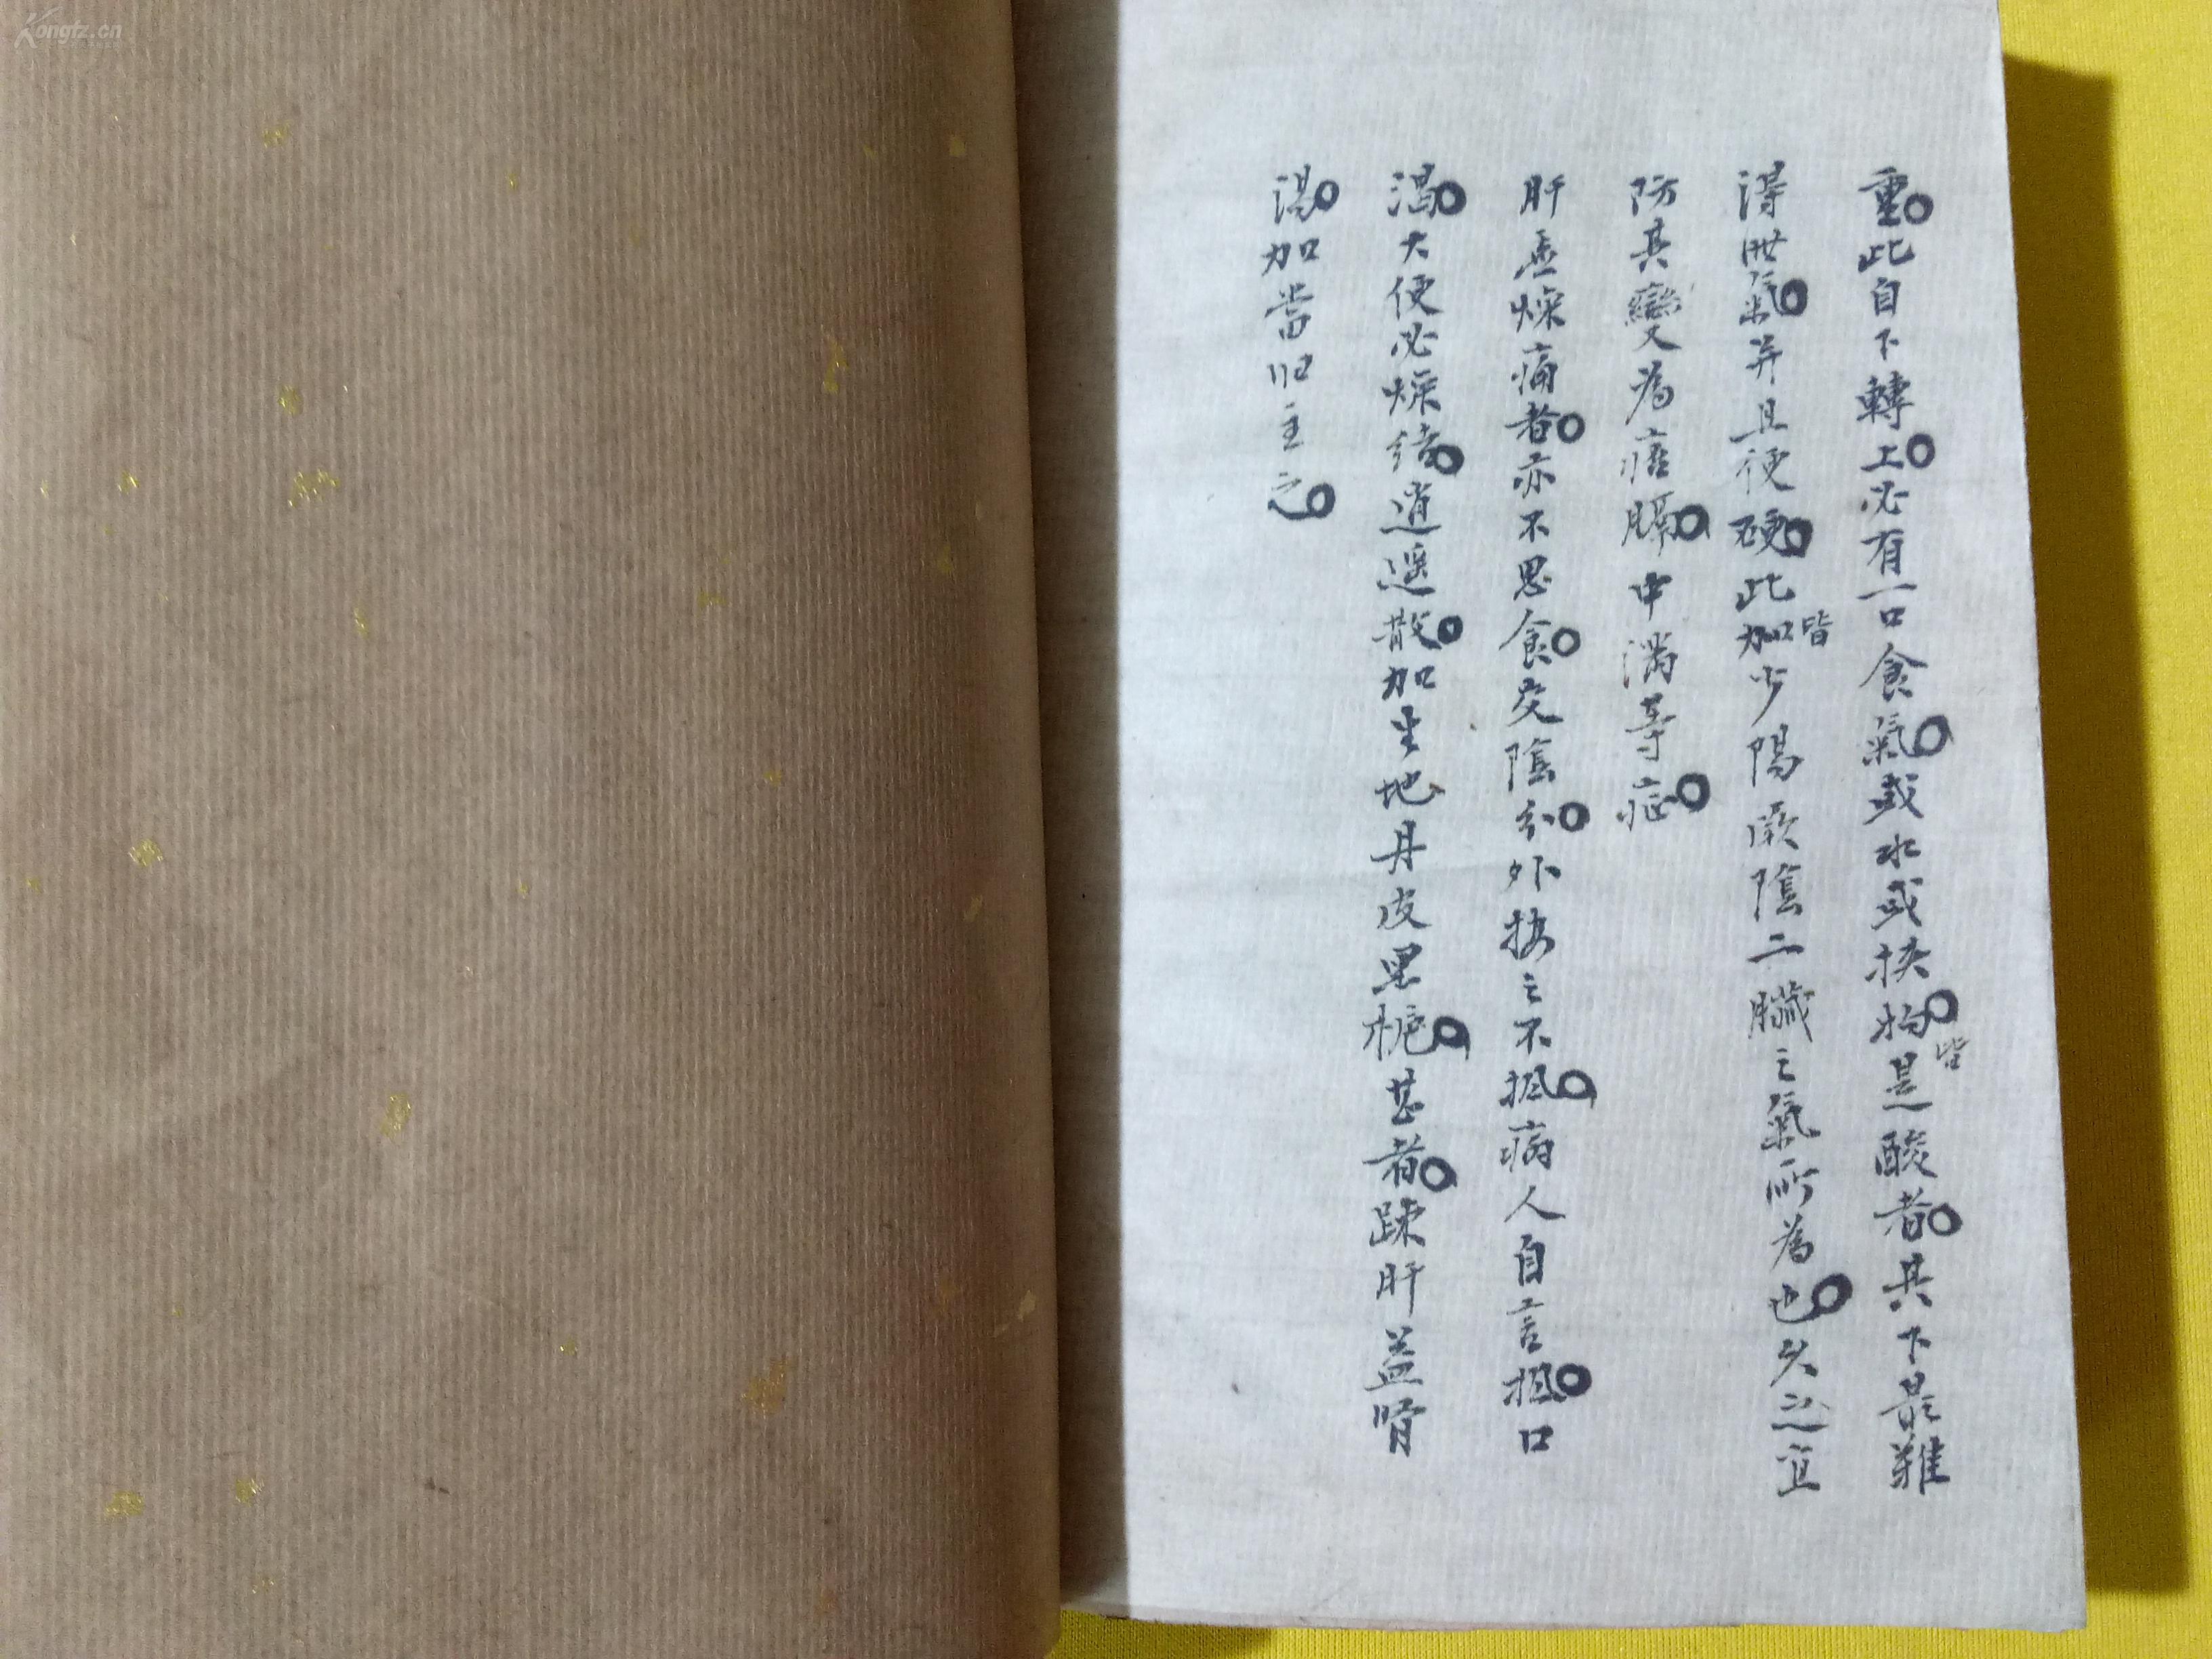 重此自下轉上必有一口食氣或水或挾物皆是酸者其下最難
得泄氣并且便硬此皆加少陽厥陰二臟之氣所為也久延宜
防其變為瘧膈中滿等症
肝虛燥痛者亦不思食交陰分外按之不拒病人自言拒口
渴大便必燥結逍遥散加生地丹皮黑梔甚者踈肝益腎
湯加當歸主之
Kongfz.cn